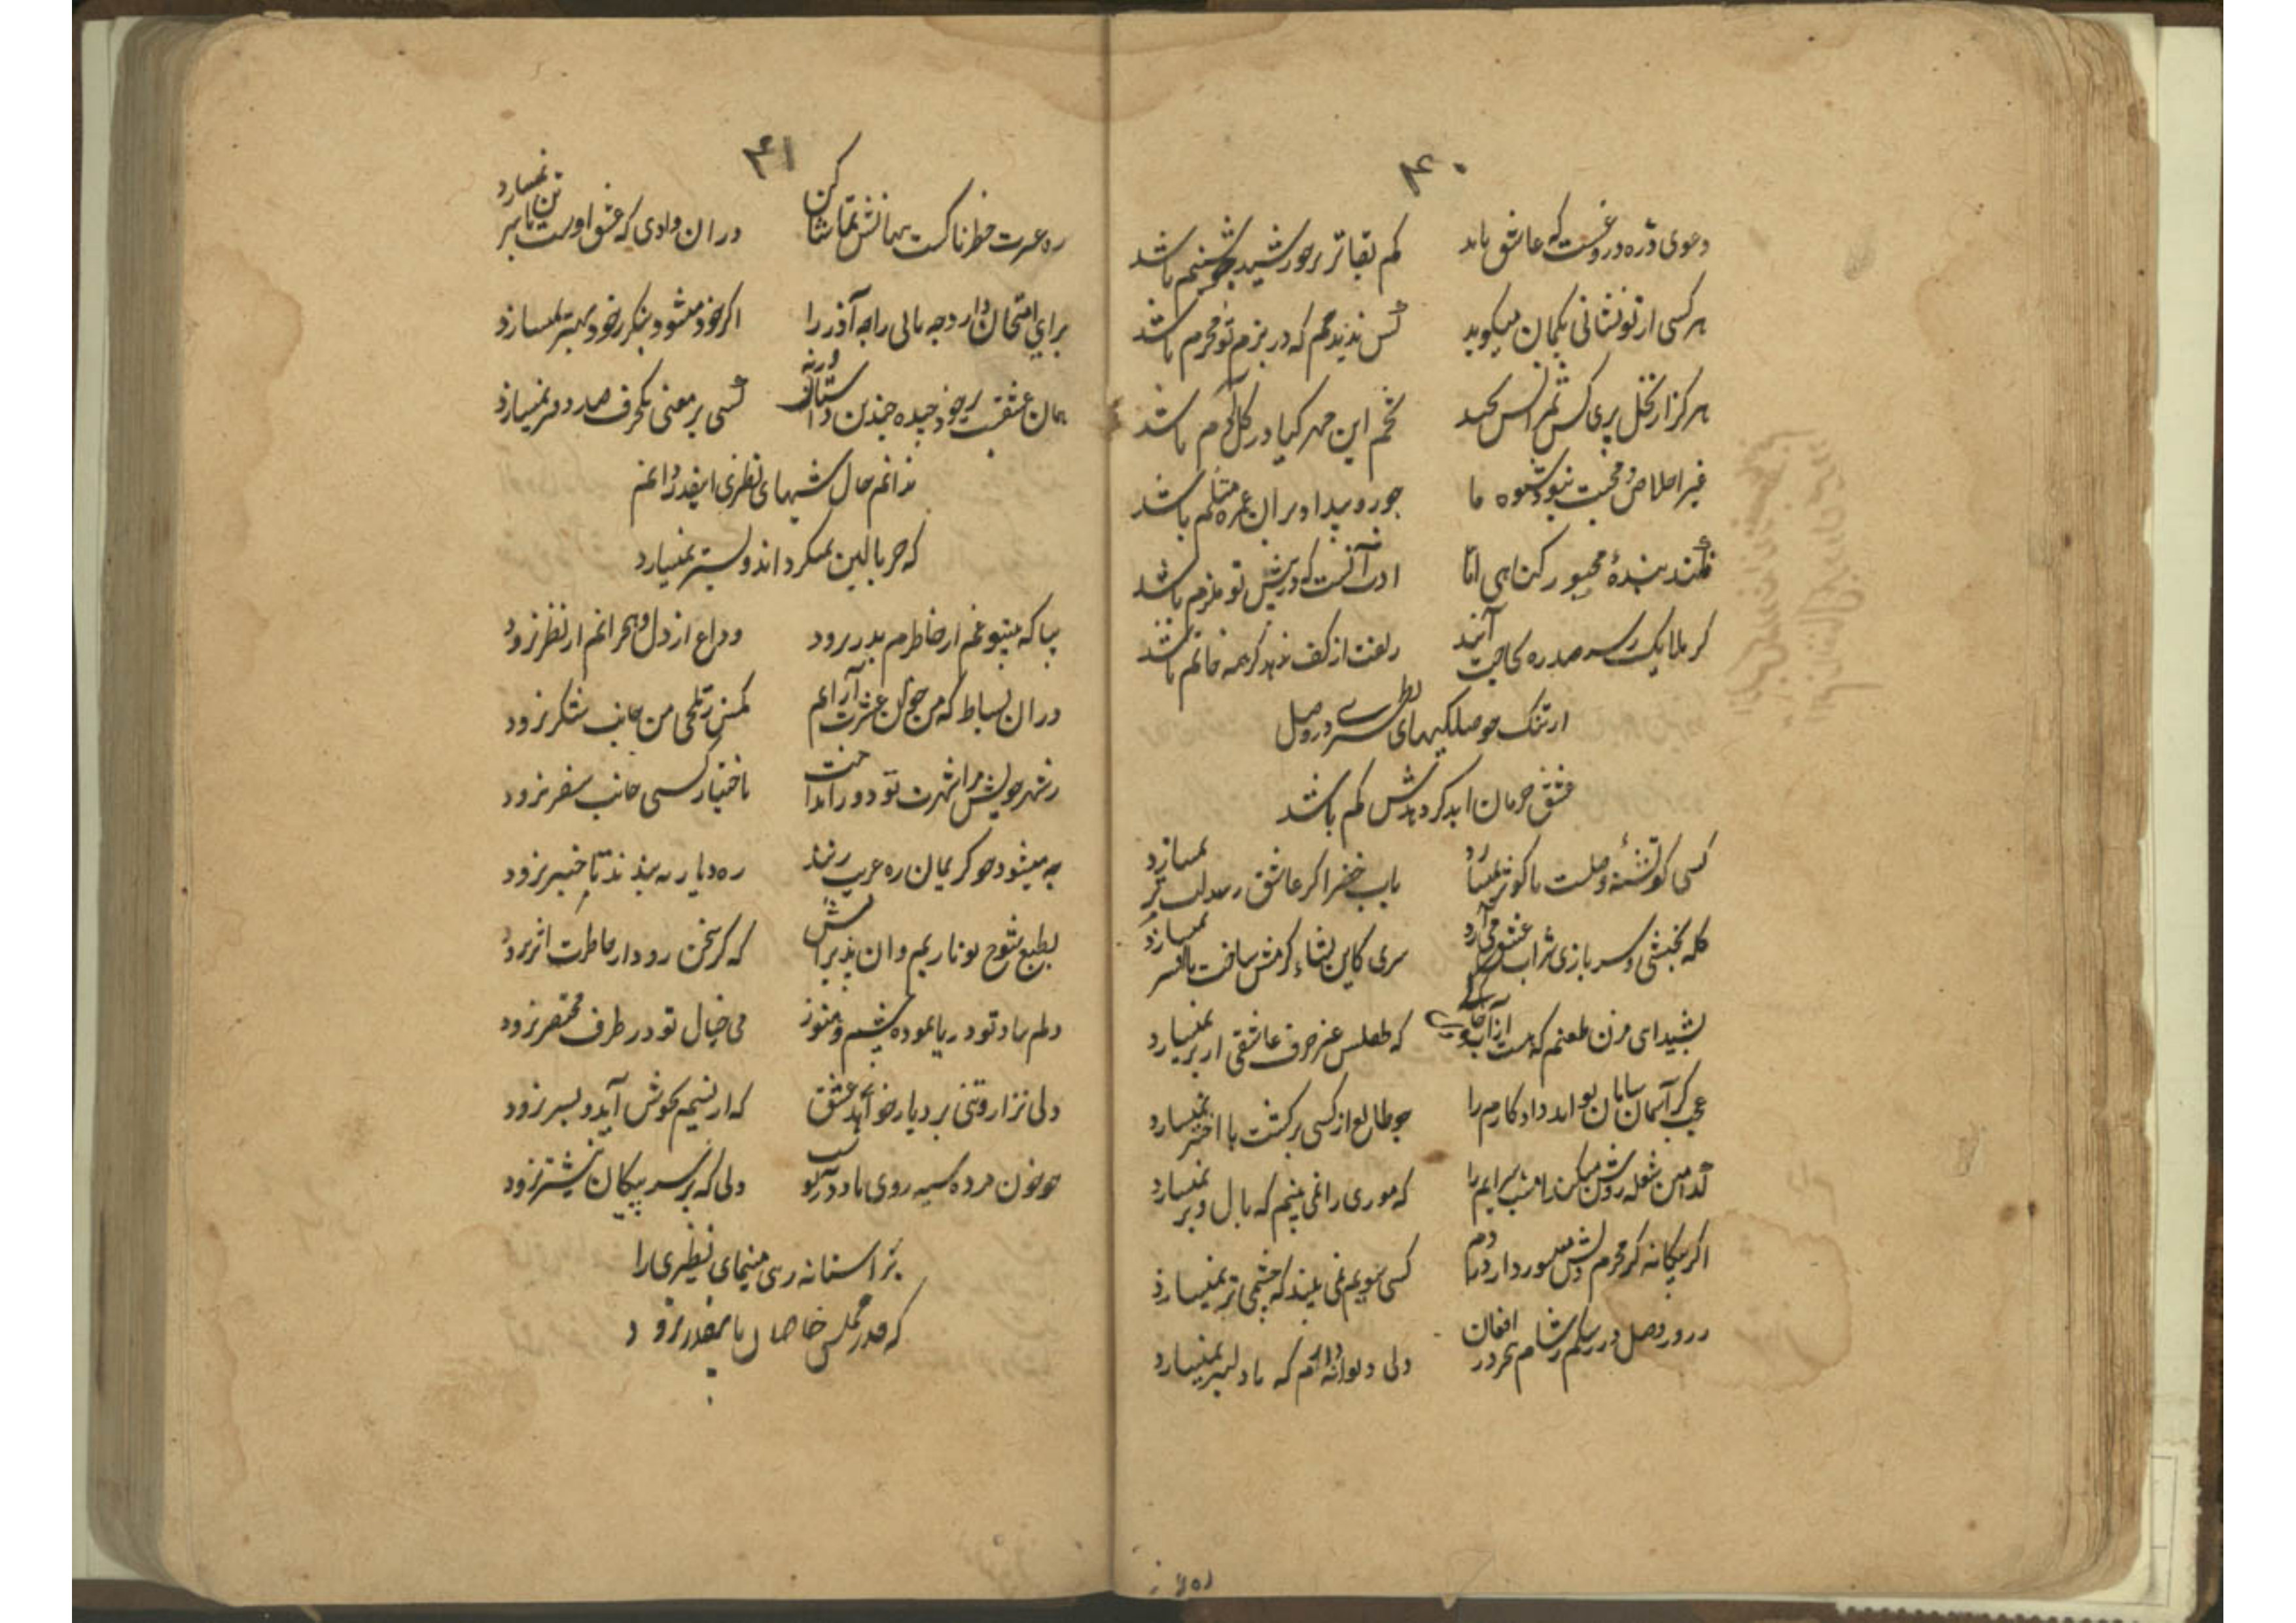 ۴۰
دعوی ذره دروغست که عاشق باید
کم بقاتر بر خورشید ز شبنم باشد
هر کسی از تو نشانی بگمان میگوید
کس ندیدم که در بزم تو محرم باشد
هرگز از نخل پری کس ثمر انس نچید
تخم این مهر گیا در گل آدم باشد
غیر اخلاص و محبت نبود شیوه ما
جور و بیداد بران غمزه مسلم باشد
نکند بنده مجبور گناهی اما
ادب آنست که در پیش تو ملزم باشد
کر بلا یک رسد صد ره بحاجت آیند
زلفت از کف ندهد گر همه خاتم باشد
از تنک حوصلگیهای نظیری در وصل
عشق حرمان ابد کرد بدش کم باشد
کسی کو تشنه وصلست با کوثر نمیسازد
بآب خضر اگر عاشق رسد لب تر نمیسازد
کله بخشی و سربازی شراب عشق می آرد
سری کاین نشاء گرمش ساخت با افسر نمیسازد
بشیدای مزن طعنم که هست از آب و خاکی
که طفلس غیر حرف عاشقی از بر نمیسازد
عجب گر آسمان سامان تواند داد کارم را
چو طالع از کسی برگشت با اختر نمیسازد
کدامین شعله روشن میکند امشب سرایم را
که موری را نمی بینم که بال و پر نمیسازد
اگر بیگانه گر محرم دلش سوز دارد دردم
کسی سویم نمی بیند که چشمی تر نمیسازد
ز روز وصل در رشکم ز شام هجر در افغان
دلی دیوانه دارم که با دلبر نمیسازد
۴۱
ره عبرت خطرناکست پنهانش تماشا کن
در ان وادی که عشق اوست تن با سر نمیسازد
برای امتحان دارد چه مانی را چه آذر را
اگر خود میشود بتگر ز خود بهتر نمیسازد
همان عشقست بر خود چیده چندین داستان ورنه
کسی بر معنی یکحرف صد دفتر نمیسازد
ندانم حال شبهای نظیری اینقدر دانم
که جز بالین نمیگرداند و بستر نمیسازد
بیا که بیتو غم از خاطرم بدر نرود
وداع از دل و هجرانم از نظر نرود
در ان بساط که من خوان عشرت آرایم
مگس ز تلخی من جانب شکر نرود
ز شهر خویش مرا شهرت تو دور انداخت
باختیار کسی جانب سفر نرود
چه میشود چو کریمان ره غریب زنند
ره دیار به بندند تا خبر نرود
بطبع شوخ تو نازیم و ان پذیرایش
که گر سخن رود از خاطرت اثر نرود
دلم بیاد تو دریا نموده شیشه و هنوز
می خیال تو در ظرف مختصر نرود
دلی نزار و تنی بردبار خواهد عشق
که از نسیم بجوش آید و بسر نرود
چو خون مرده سیه روی باد در تن
دلی که بر سر پیکان نیشتر نرود
بر آستانه رسی مینمای نظیری را
که در مجلس خاصان باینقدر نرود